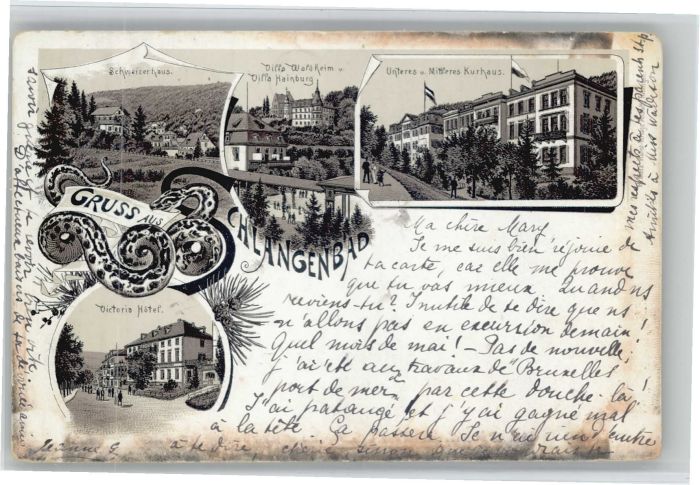 Schweizerhaus.
Villa Waldheim u.
Villa Hainburg
Unteres u. Mittleres Kurhaus.
GRUSS AUS
SCHLANGENBAD
Victoria Hôtel.
Ma chère Mary
Je me suis bien réjouie de
ta carte, car elle me prouve
que tu vas mieux. Quand ns
reviens-tu? Inutile de te dire que ns
n'allons pas en excursion demain!
Quel mois de mai! - Pas de nouvelle,
j'ai été aux travaux de "Bruxelles
port de mer" par cette douche là!
J'ai patangé et j'y ai gagné mal
à la tête. Ça passera. Je n'ai rien d'autre
à te dire, sinon
mes respects à tes parents stp.
amitiés à Miss Wallison
Jeanne G